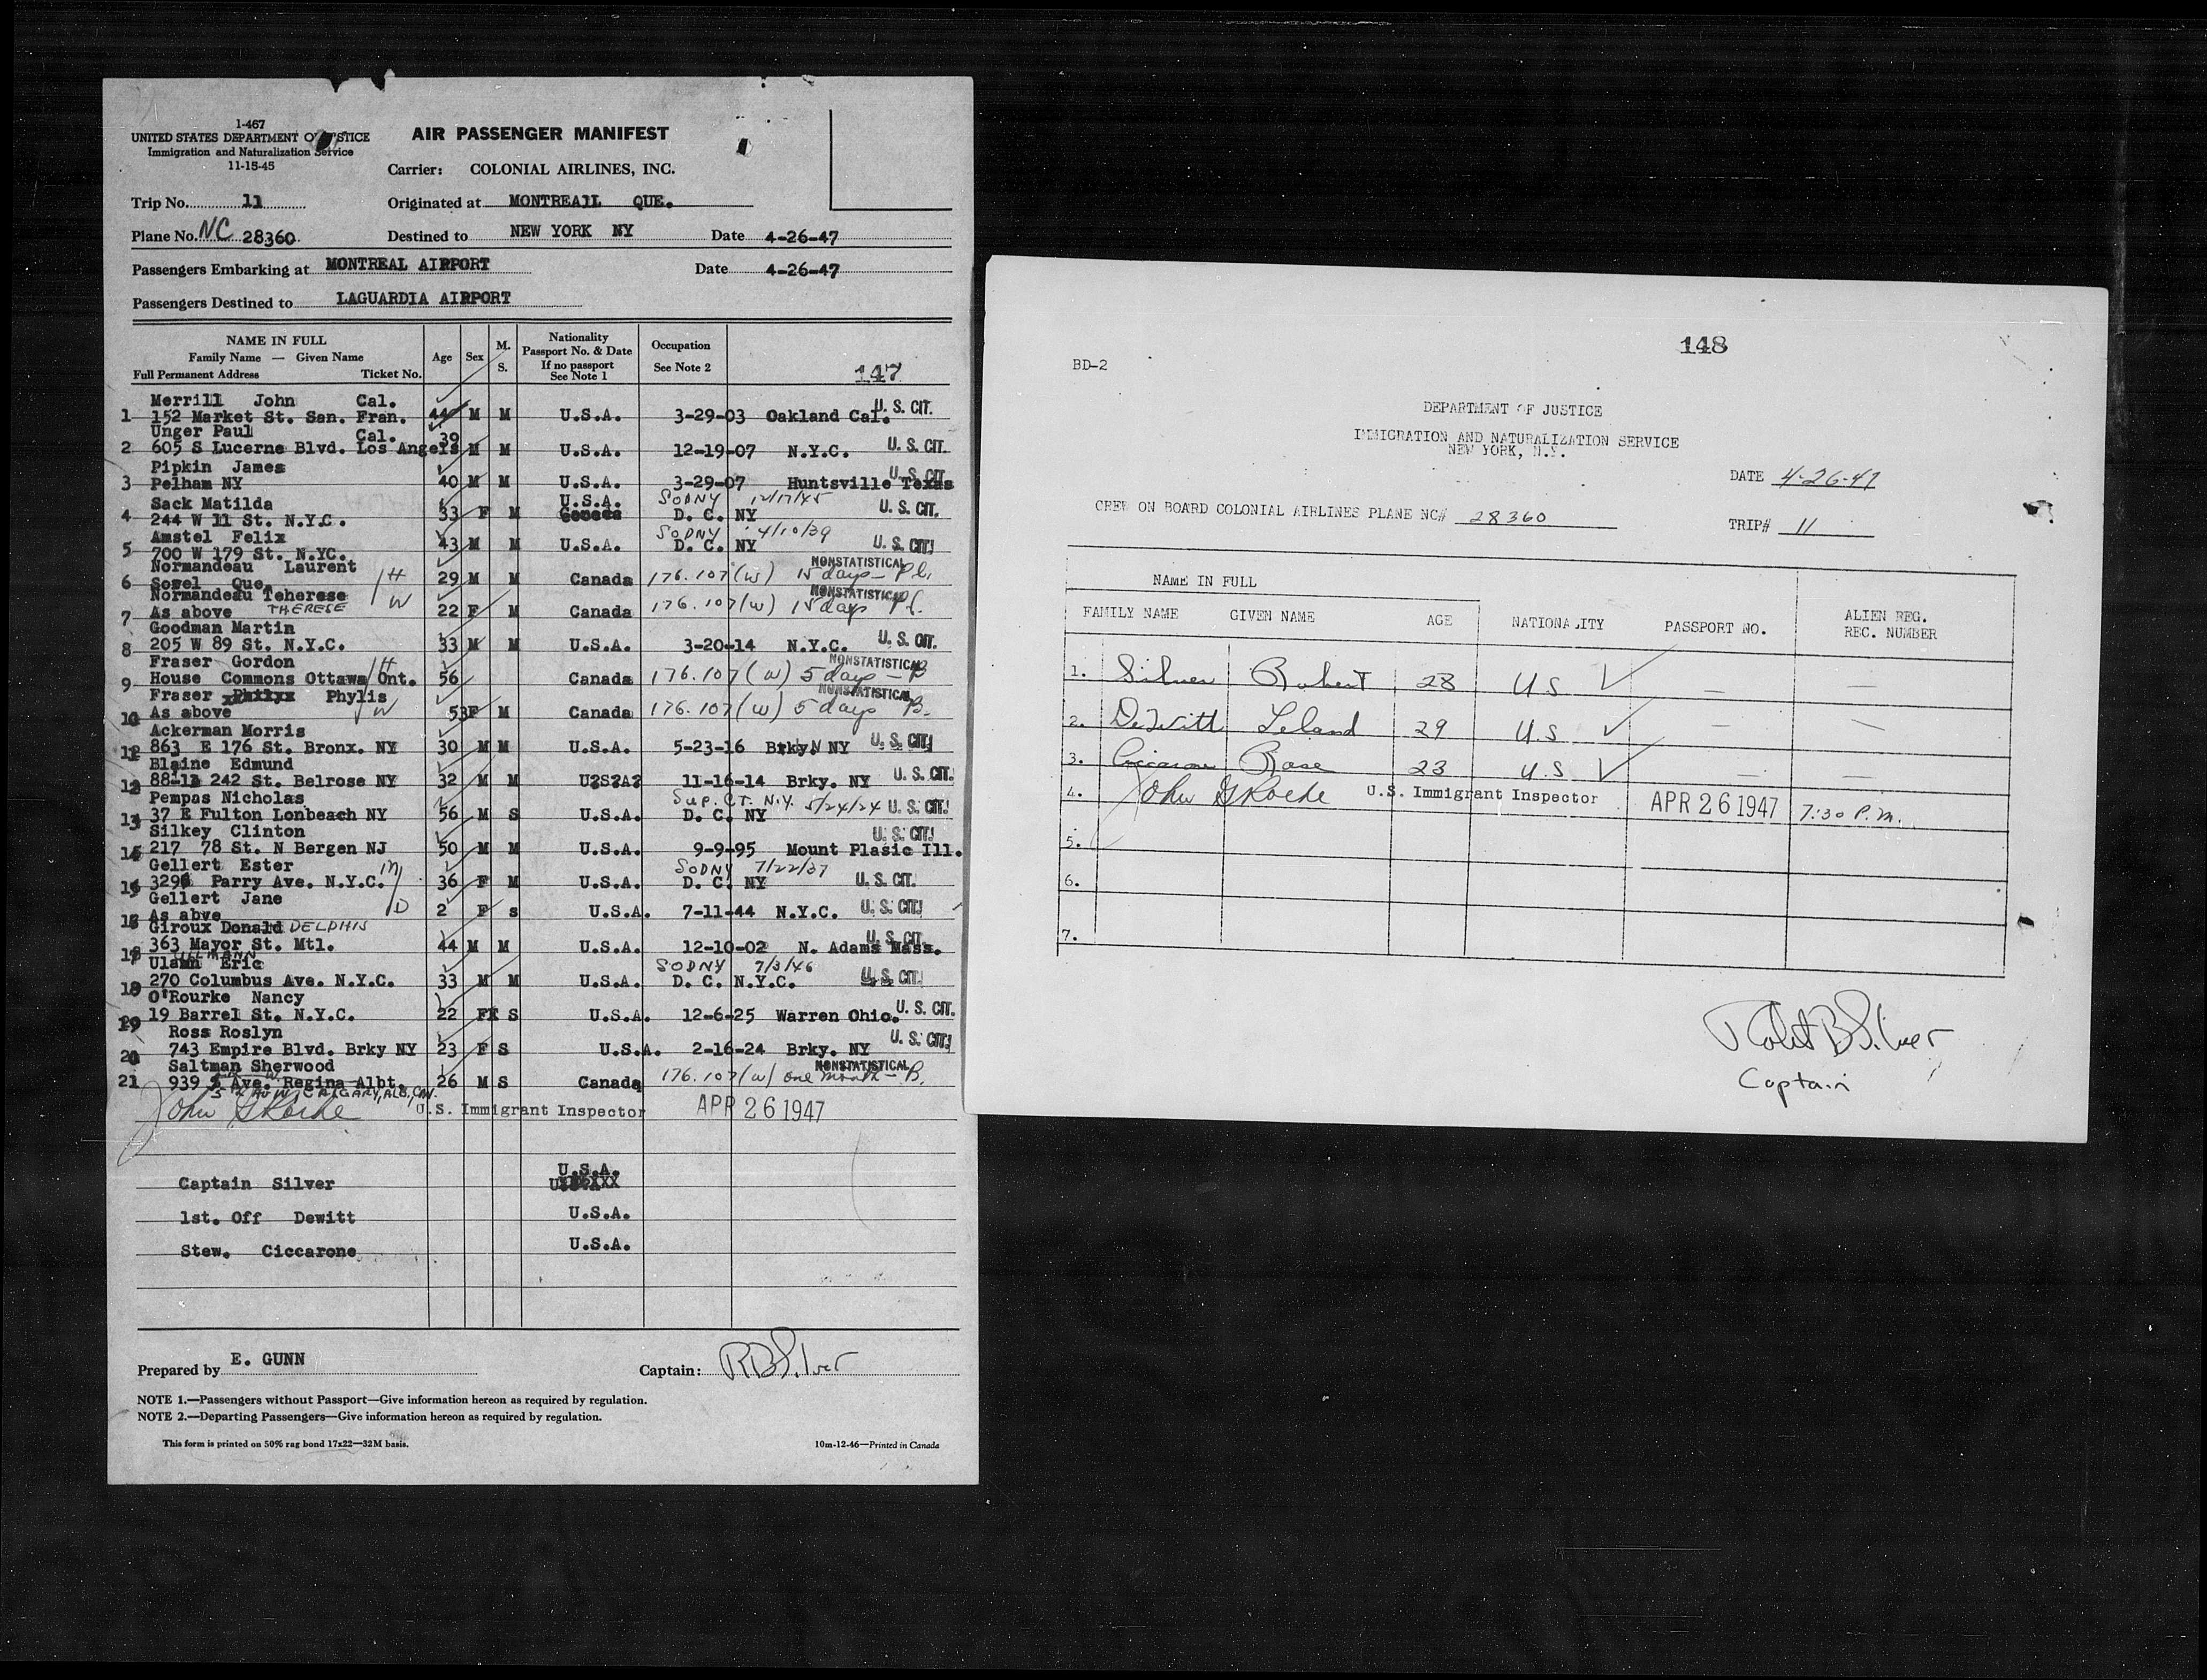 1-467
UNITED STATES DEPARTMENT OF JUSTICE
Immigration and Naturalization Service
11-15-45
AIR PASSENGER MANIFEST
Carrier: COLONIAL AIRLINES, INC.
Trip No. 11 Originated at MONTREAll QUE.
Plane No. NC 28360 Destined to NEW YORK NY Date 4-26-47
Passengers Embarking at MONTREAL AIRPORT Date 4-26-47
Passengers Destined to LAGUARDIA AIRPORT
NAME IN FULL
Family Name — Given Name
Full Permanent Address Ticket No.
Age Sex M. S.
Nationality
Passport No. & Date
If no passport
See Note 1
Occupation
See Note 2
147
Merrill John Cal.
1 152 Market St. San. Fran. 44 M M U.S.A. 3-29-03 Oakland Cal. U. S. CIT.
Unger Paul Cal.
2 605 S Lucerne Blvd. Los Angels 39 M M U.S.A. 12-19-07 N.Y.C. U. S. CIT.
Pipkin James
3 Pelham NY 40 M M U.S.A. 3-29-07 Huntsville Texas U. S. CIT.
Sack Matilda U.S.A. SODNY 12/17/45
4 244 W 11 St. N.Y.C. 33 F M D. C. NY U. S. CIT.
Amstel Felix SODNY 4/10/39
5 700 W 179 St. N.YC. 43 M M U.S.A. D. C. NY U. S. CIT.
Normandeau Laurent NONSTATISTICAL
6 Sorel Que. H 29 M M Canada 176.107(W) 15 days - Pl.
Normandeau Teherese NONSTATISTICAL
7 As above THERESE W 22 F M Canada 176.107(W) 15 days Pl.
Goodman Martin
8 205 W 89 St. N.Y.C. 33 M M U.S.A. 3-20-14 N.Y.C. U. S. CIT.
Fraser Gordon NONSTATISTICAL
9 House Commons Ottawa Ont. H 56 Canada 176.107(W) 5 days - B
Fraser Phylis NONSTATISTICAL
10 As above W 53 F M Canada 176.107(W) 5 days B.
Ackerman Morris
863 E 176 St. Bronx. NY 30 M M U.S.A. 5-23-16 Brky. N NY U. S. CIT.
Blaine Edmund
12 88-11 242 St. Belrose NY 32 M M U?S?A? 11-16-14 Brky. NY U. S. CIT.
Pempas Nicholas Sup. CT. N.Y. 5/24/24
13 37 E Fulton Lonbeach NY 56 M S U.S.A. D. C. NY U. S. CIT.
Silkey Clinton U. S. CIT.
217 78 St. N Bergen NJ 50 M M U.S.A. 9-9-95 Mount Plasic Ill.
Gellert Ester M SODNY 7/22/37
Parry Ave. N.Y.C. 36 F M U.S.A. D. C. NY U. S. CIT.
Gellert Jane
As abve D 2 F s U.S.A. 7-11-44 N.Y.C. U. S. CIT.
Giroux Donald DELPHIS
363 Mayor St. Mtl. 44 M M U.S.A. 12-10-02 N. Adams Mass. U. S. CIT.
ULLMANN Eric SODNY 7/3/46
18 270 Columbus Ave. N.Y.C. 33 M M U.S.A. D. C. N.Y.C. U. S. CIT.
O'Rourke Nancy
19 19 Barrel St. N.Y.C. 22 F S U.S.A. 12-6-25 Warren Ohio. U. S. CIT.
Ross Roslyn
20 743 Empire Blvd. Brky NY 23 F S U.S.A. 2-16-24 Brky. NY U. S. CIT.
Saltman Sherwood NONSTATISTICAL
21 939 Ave. Regina Albt. 26 M S Canada 176.107(W) one month - B.
CALGARY, ALB, CAN.
U.S. Immigrant Inspector APR 26 1947
Captain Silver U.S.A.
1st. Off Dewitt U.S.A.
Stew. Ciccarone U.S.A.
Prepared by E. GUNN Captain: RB Silver
NOTE 1.—Passengers without Passport—Give information hereon as required by regulation.
NOTE 2.—Departing Passengers—Give information hereon as required by regulation.
This form is printed on 50% rag bond 17x22—32M basis. 10m-12-46—Printed in Canada
148
BD-2
DEPARTMENT OF JUSTICE
IMMIGRATION AND NATURALIZATION SERVICE
NEW YORK, N.Y.
DATE 4-26-47
CREW ON BOARD COLONIAL AIRLINES PLANE NC# 28360 TRIP# 11
NAME IN FULL
FAMILY NAME GIVEN NAME AGE NATIONALITY PASSPORT NO. ALIEN REG. REC. NUMBER
1. Silver Robert 28 US — —
2. DeWitt Leland 29 U.S — —
3. Ciccarone Rose 23 U.S — —
4. U.S. Immigrant Inspector APR 26 1947 7:30 P.M.
5.
6.
7.
Robert B Silver
Captain